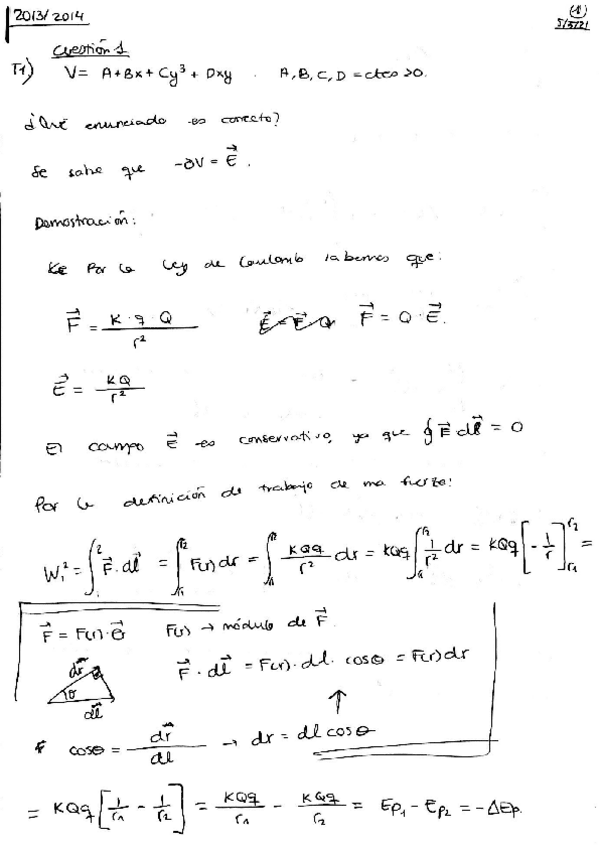 2013/2014
(1)
5/3/21
Cuestión 1
T1) V = A+Bx+Cy³+Dxy . A, B, C, D = ctes >0.
¿Qué enunciado es correcto?
Se sabe que -∂V = E⃗.
Demostración:
Por la Ley de Coulomb sabemos que:
F⃗ = K·q·Q / r² F⃗ = Q·E⃗.
E⃗ = KQ / r²
El campo E⃗ es conservativo, ya que ∮E⃗ dl⃗ = 0
Por la definición de trabajo de una fuerza:
W₁² = ∫₁² F⃗·dl⃗ = ∫_{r1}^{r2} F(r) dr = ∫_{r1}^{r2} KQq/r² dr = KQq ∫_{r1}^{r2} 1/r² dr = KQq [-1/r]_{r1}^{r2} =
F⃗ = F(r)·e⃗ F(r) → módulo de F⃗.
dr⃗
θ
dl⃗
F⃗·dl⃗ = F(r)·dl·cosθ = F(r)dr
↑
cosθ = dr⃗ / dl → dr = dl cosθ
= KQq [1/r1 - 1/r2] = KQq/r1 - KQq/r2 = Ep₁ - Ep₂ = -ΔEp.